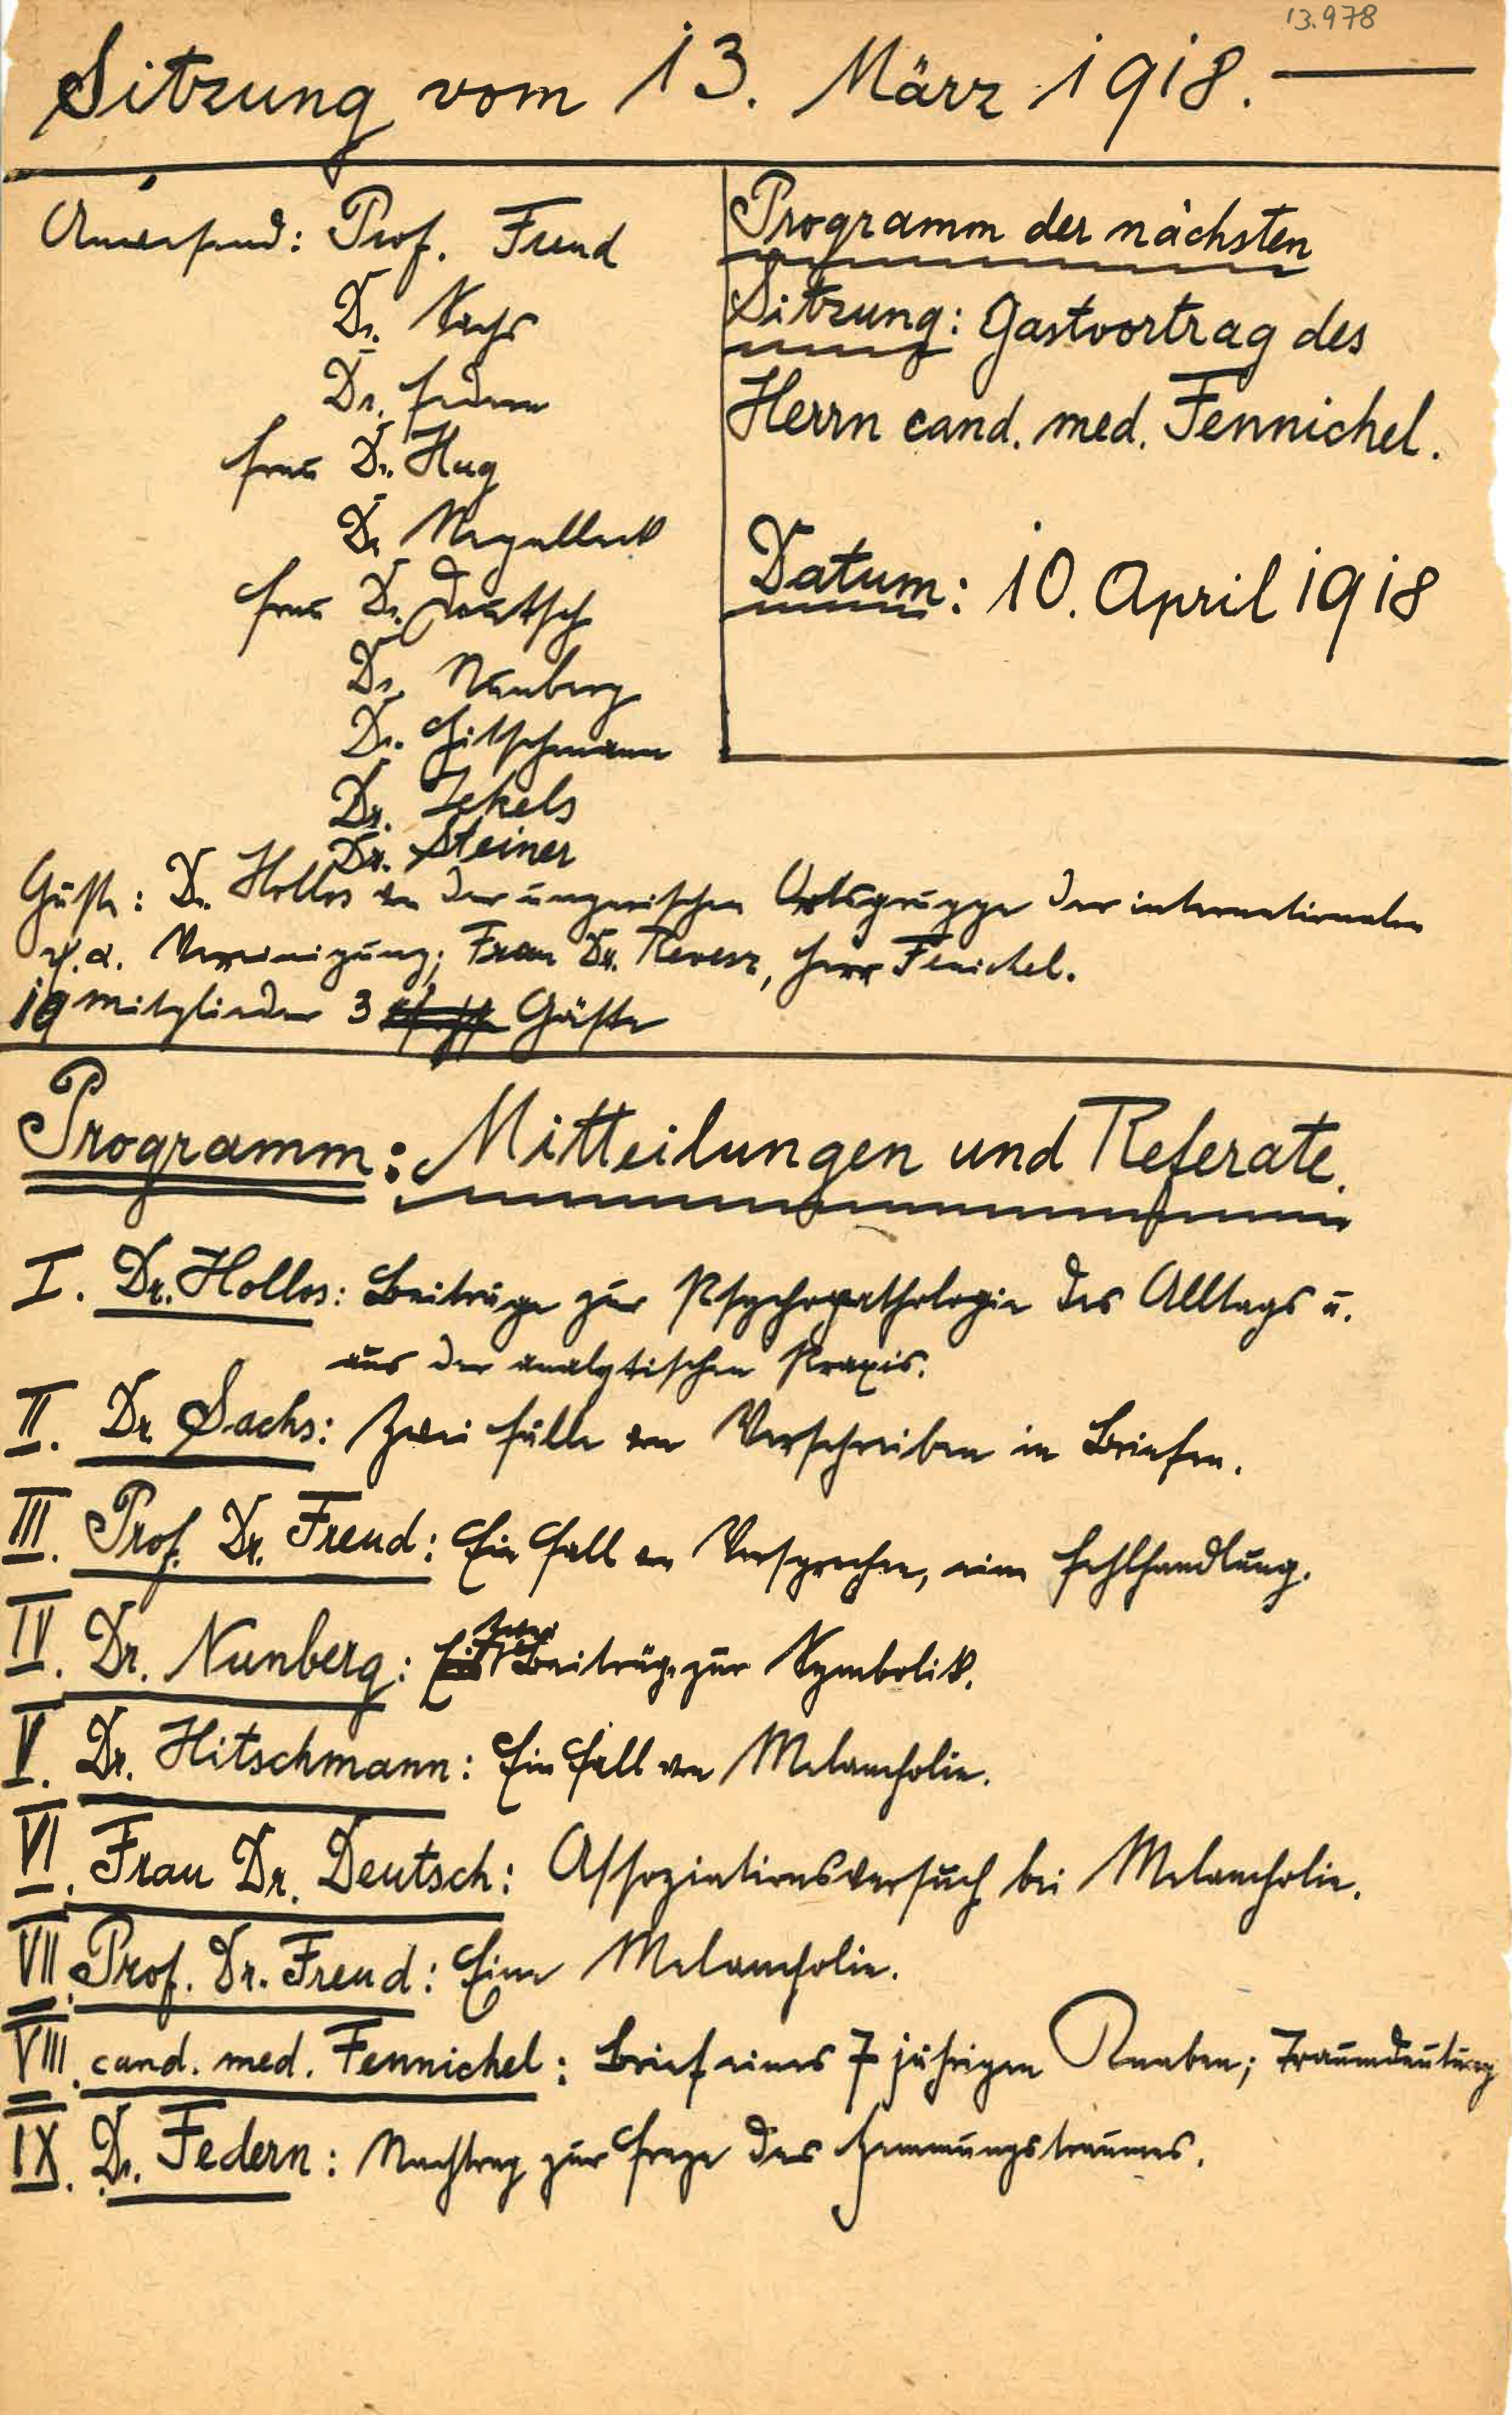 13.978
Sitzung vom 13. März 1918.
Anwesend: Prof. Freud
Dr. Sachs
Dr. Federn
Frau Dr. Hug
Dr
Frau Dr. Deutsch
Dr. Nunberg
Dr. Hitschmann
Dr. Jekels
Dr. Steiner
Programm der nächsten
Sitzung: Gastvortrag des
Herrn cand. med. Fennichel.
Datum: 10. April 1918
Gäste: Dr. Hollos von der ungarischen Ortsgruppe der internationalen
ψ.α. Vereinigung; Frau Dr. Revesz, Herr Fenichel.
10 Mitglieder 3 Gäste
Programm: Mitteilungen und Referate.
I. Dr. Hollos: Beiträge zur Psychopathologie des Alltags u.
aus der analytischen Praxis.
II. Dr Sachs: Zwei Fälle von Verschreiben in Briefen.
III. Prof. Dr. Freud: Ein Fall von Versprechen, eine Fehlhandlung.
IV. Dr. Nunberg: zwei Beiträge zur Symbolik.
V. Dr. Hitschmann: Ein Fall von Melancholie.
VI. Frau Dr. Deutsch: Assoziationsversuch bei Melancholie.
VII. Prof. Dr. Freud: Eine Melancholie.
VIII. cand. med. Fennichel: Brief eines 7 jährigen Knaben; Traumdeutung
IX. Dr. Federn: Nachtrag zur Frage des Hemmungstraumes.